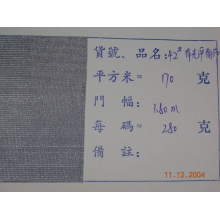 貨號、品名:42#
平方米= 170 克
門 幅: 1.80m
每 碼= 280 克
備 註:
11.12.2004